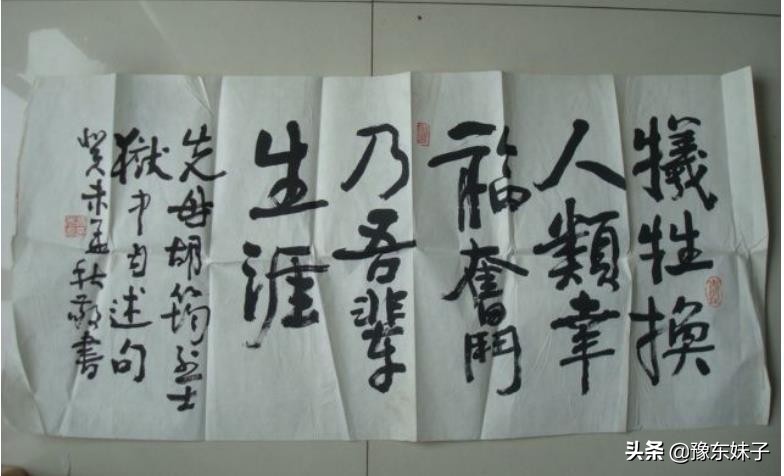 犧牲換
人類幸
福奮鬥
乃吾輩
生涯
先母胡筠烈士
獄中自述句
癸未孟秋敬書
头条 @豫东妹子